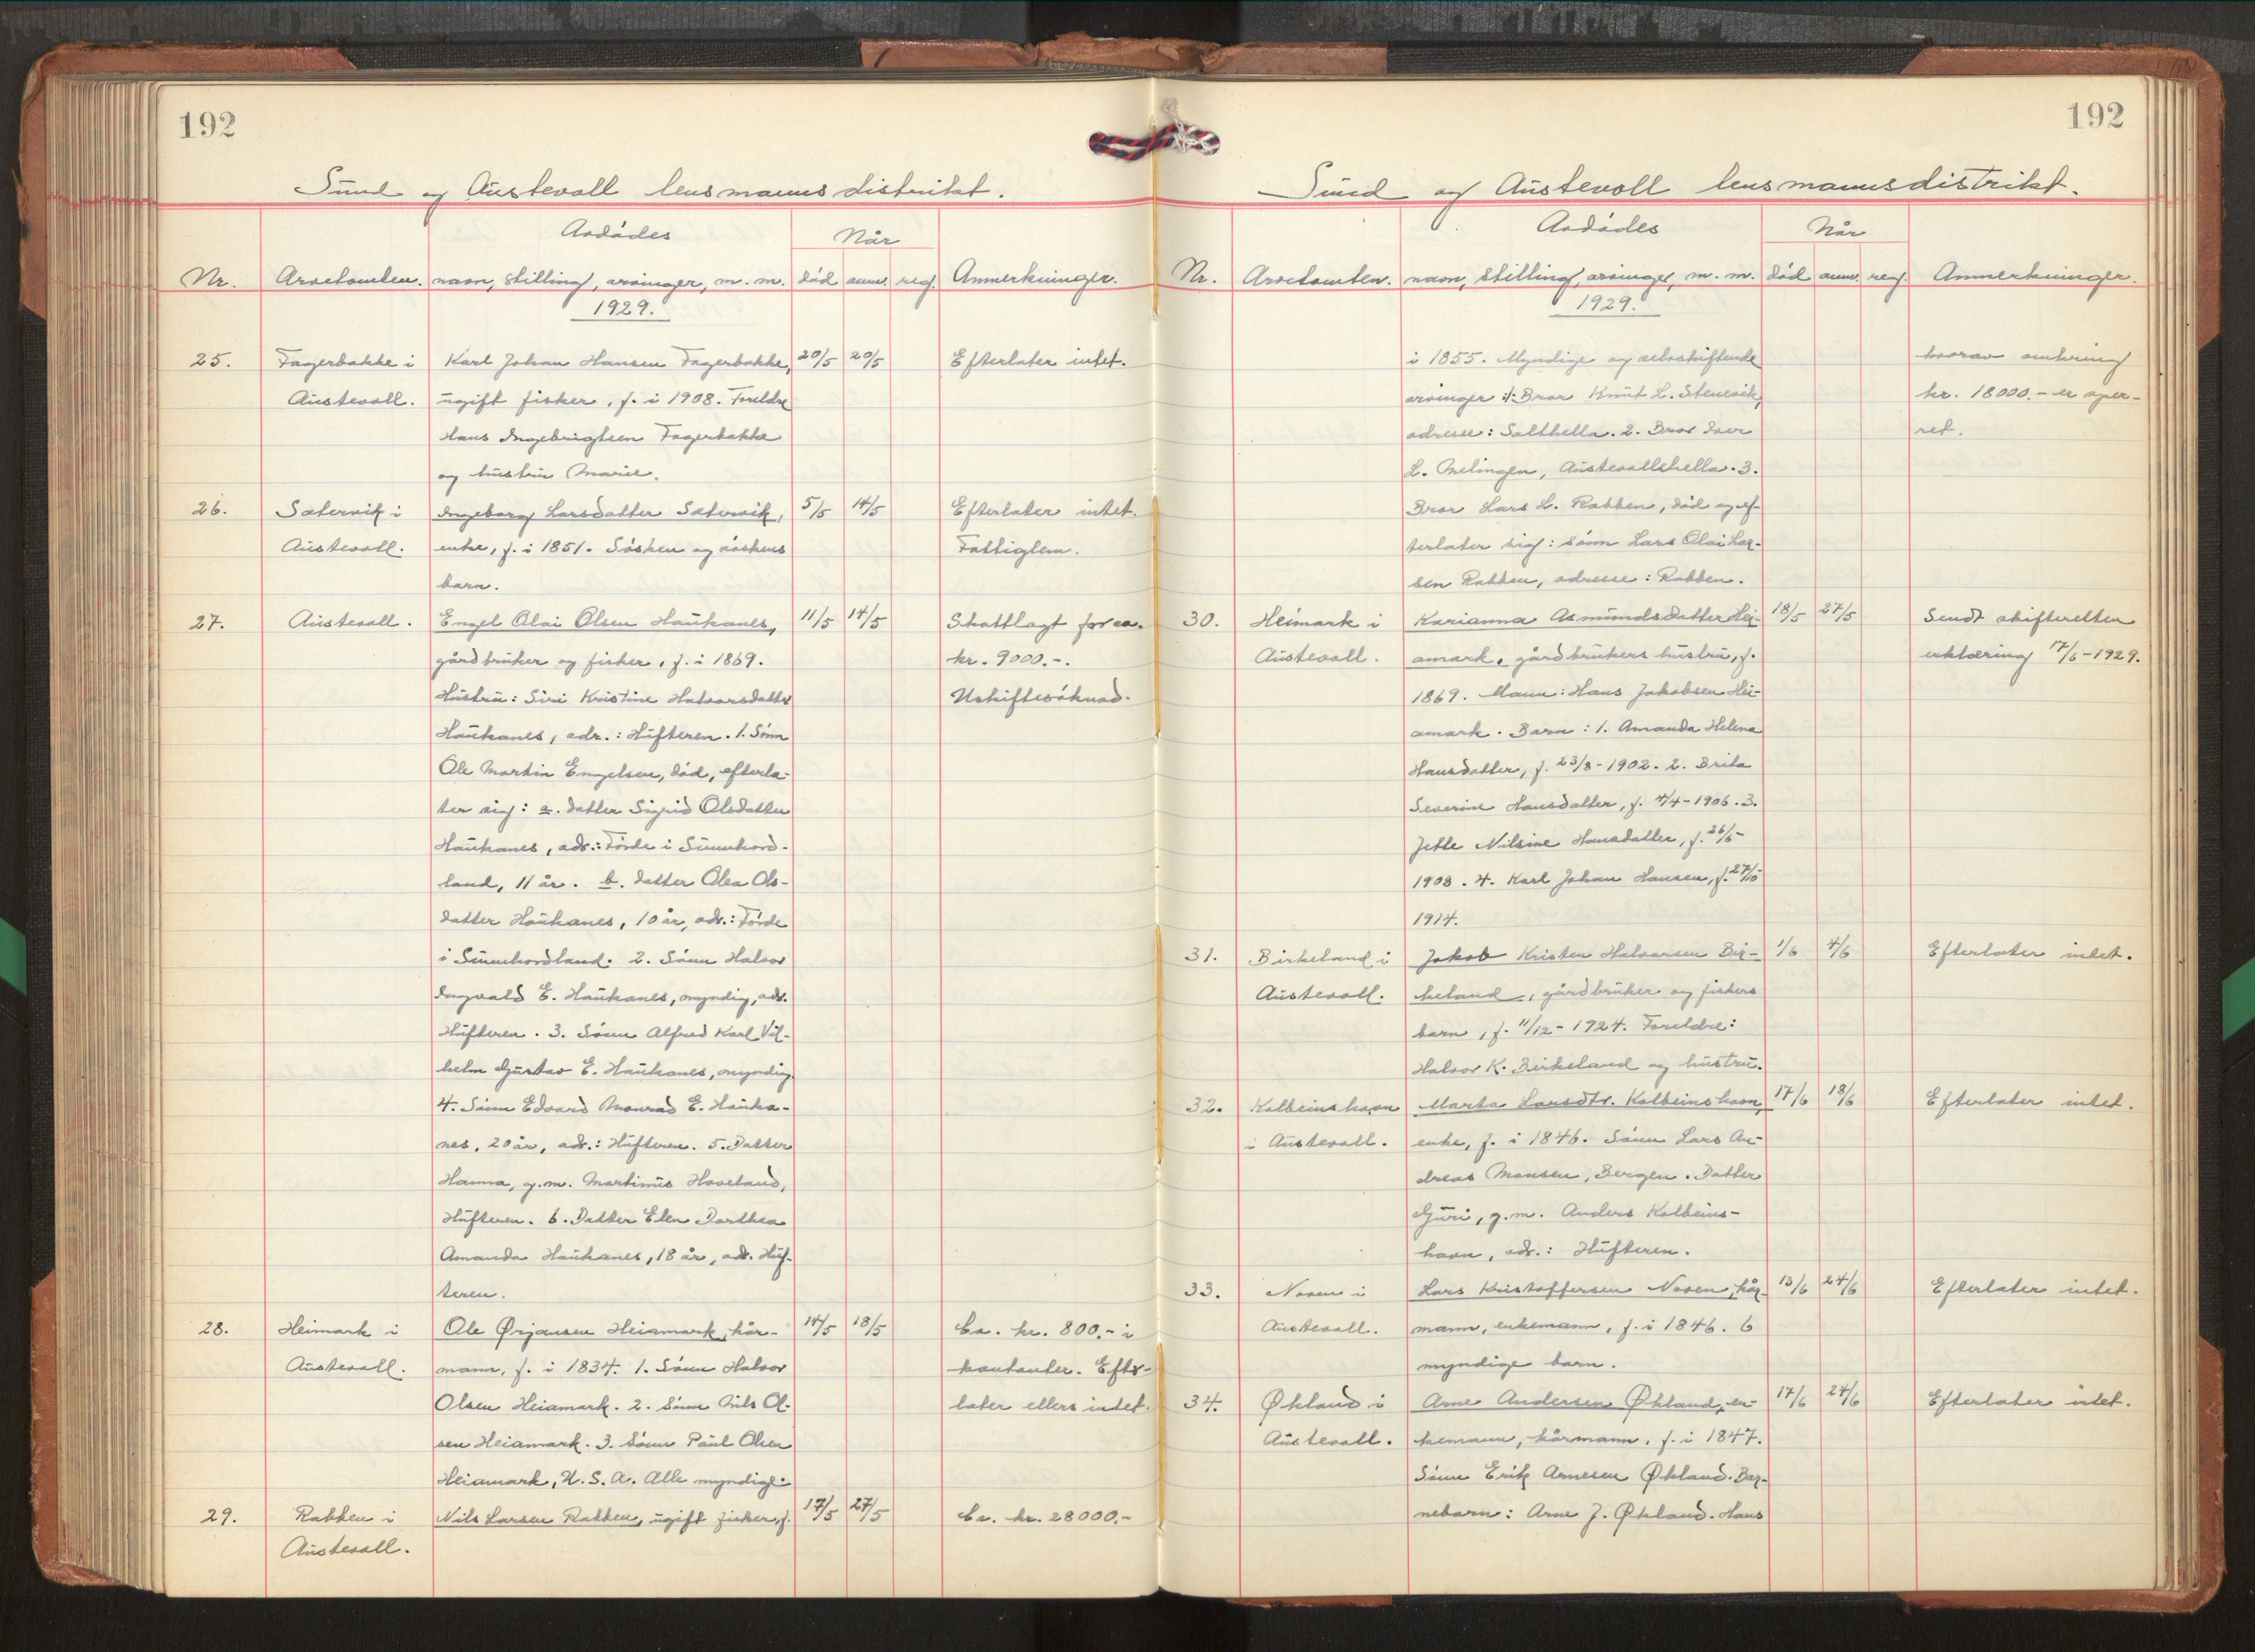 192
Sund og Austevoll lensmannsdistrikt.
Avdødes
Når
Nr. Arvetomten. navn, stilling, arvinger, m. m. død anm. reg. Anmerkninger.
1929.
25. Fagerbakke i Karl Johan Hansen Fagerbakke, 20/5 20/5 Efterlater intet.
Austevoll. ugift fisker, f. i 1908. Foreldre
Hans Ingebrigtsen Fagerbakke
og hustru Marie.
26. Satervik i Ingeborg Larsdatter Satervik, 5/5 14/5 Efterlater intet.
Austevoll. enke, f. i 1851. Søsken og søskens Fattiglem.
barn.
27. Austevoll. Engel Olai Olsen Haukanes, 11/5 14/5 Skattlagt for ca.
gårdbruker og fisker, f. i 1869. kr. 9000.-.
Hustru: Siri Kristine Halvorsdatter Uskiftesøknad.
Haukanes, adr.: Hufteren. 1. Sønn
Ole Martin Engelsen, død, efterla-
ter sig: a. datter Sigrid Olsdatter
Haukanes, adr.: Førde i Sunnhord-
land, 11 år. b. datter Olea Ols-
datter Haukanes, 10 år, adr.: Førde
i Sunnhordland. 2. Sønn Halvor
Ingvald E. Haukanes, myndig, adr.
Hufteren. 3. Sønn Alfred Karl Vil-
helm Gustav E. Haukanes, myndig.
4. Sønn Edvard Monrad E. Hauka-
nes, 20 år, adr.: Hufteren. 5. Datter
Hanna, g.m. Martinus Hoveland,
Hufteren. 6. Datter Elen Dorthea
Amanda Haukanes, 18 år, adr. Huf-
teren.
28. Heimark i Ole Ørjansen Heiamark, kår- 14/5 18/5 Ca. kr. 800.- i
Austevoll. mann, f. i 1834. 1. Sønn Halvor kontanter. Efter-
Olsen Heiamark. 2. Sønn Nils Ol- later ellers intet.
sen Heiamark. 3. Sønn Paul Olsen
Heiamark, U. S. A. Alle myndige.
29. Rabben i Nils Larsen Rabben, ugift fisker, f. 17/5 27/5 Ca. kr. 28000.-
Austevoll.
192
Sund og Austevoll lensmannsdistrikt.
Avdødes
Når
Nr. Arvetomten. navn, stilling, arvinger, m. m. død anm. reg. Anmerkninger.
1929.
i 1855. Myndige og selvskiftende hvorav omkring
arvinger: 1. Bror Knut L. Stenevik, kr. 18000.- er sper-
adresse: Salthella. 2. Bror Iver ret.
L. Melingen, Austevollshella. 3.
Bror Lars L. Rabben, død og ef-
terlater sig: sønn Lars Olai Lar-
sen Rabben, adresse: Rabben.
30. Heimark i Karianna Asmundsdatter Hei- 18/5 27/5 Sendt skifteretten
Austevoll. amark, gårdbrukers hustru, f. erklæring 17/6-1929.
1869. Mann: Hans Jakobsen Hei-
amark. Barn: 1. Amanda Helena
Hansdatter, f. 23/8-1902. 2. Brita
Severine Hansdatter, f. 4/4-1906. 3.
Jette Nilsine Hansdatter, f. 26/5-
1908. 4. Karl Johan Hansen, f. 27/10
1914.
31. Birkeland i Jakob Kristen Halvorsen Bir- 1/6 4/6 Efterlater intet.
Austevoll. keland, gårdbruker og fiskers
barn, f. 11/12-1924. Foreldre:
Halvor K. Birkeland og hustru.
32. Kolbeinshavn Marta Larsdtr. Kolbeinshavn, 17/6 18/6 Efterlater intet.
i Austevoll. enke, f. i 1846. Sønn Lars An-
dreas Monsen, Bergen. Datter
Guri, g.m. Anders Kolbeins-
havn, adr.: Hufteren.
33. Noven i Lars Kristoffersen Noven, kår- 13/6 24/6 Efterlater intet.
Austevoll. mann, enkemann, f. i 1846. 6
myndige barn.
34. Økland i Arne Andersen Økland, en- 17/6 24/6 Efterlater intet.
Austevoll. kemann, kårmann, f. i 1847.
Sønn Erik Arnesen Økland. Bar-
nebarn: Arne J. Økland. Hans